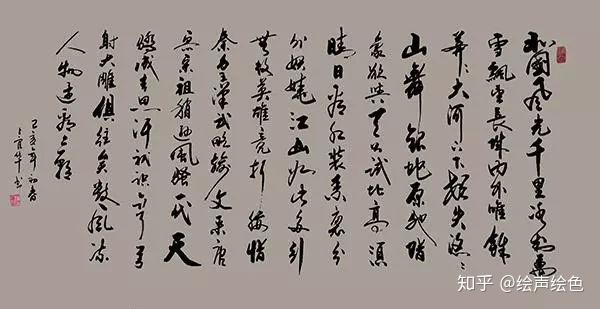 北國風光千里冰封萬
雪飄望長城内外唯餘
莽〻大河上下頓失滔〻
山舞銀蛇原馳蠟
象欲與天公試比高須
晴日看紅裝素裹分
外妖嬈江山如此多嬌引
無數英雄競折腰惜
秦皇漢武略輸文采唐
宗宋祖稍遜風騷一代天
驕成吉思汗只識彎弓
射大雕俱往矣數風流
人物還看今朝
己丑年初春
知乎 @绘声绘色